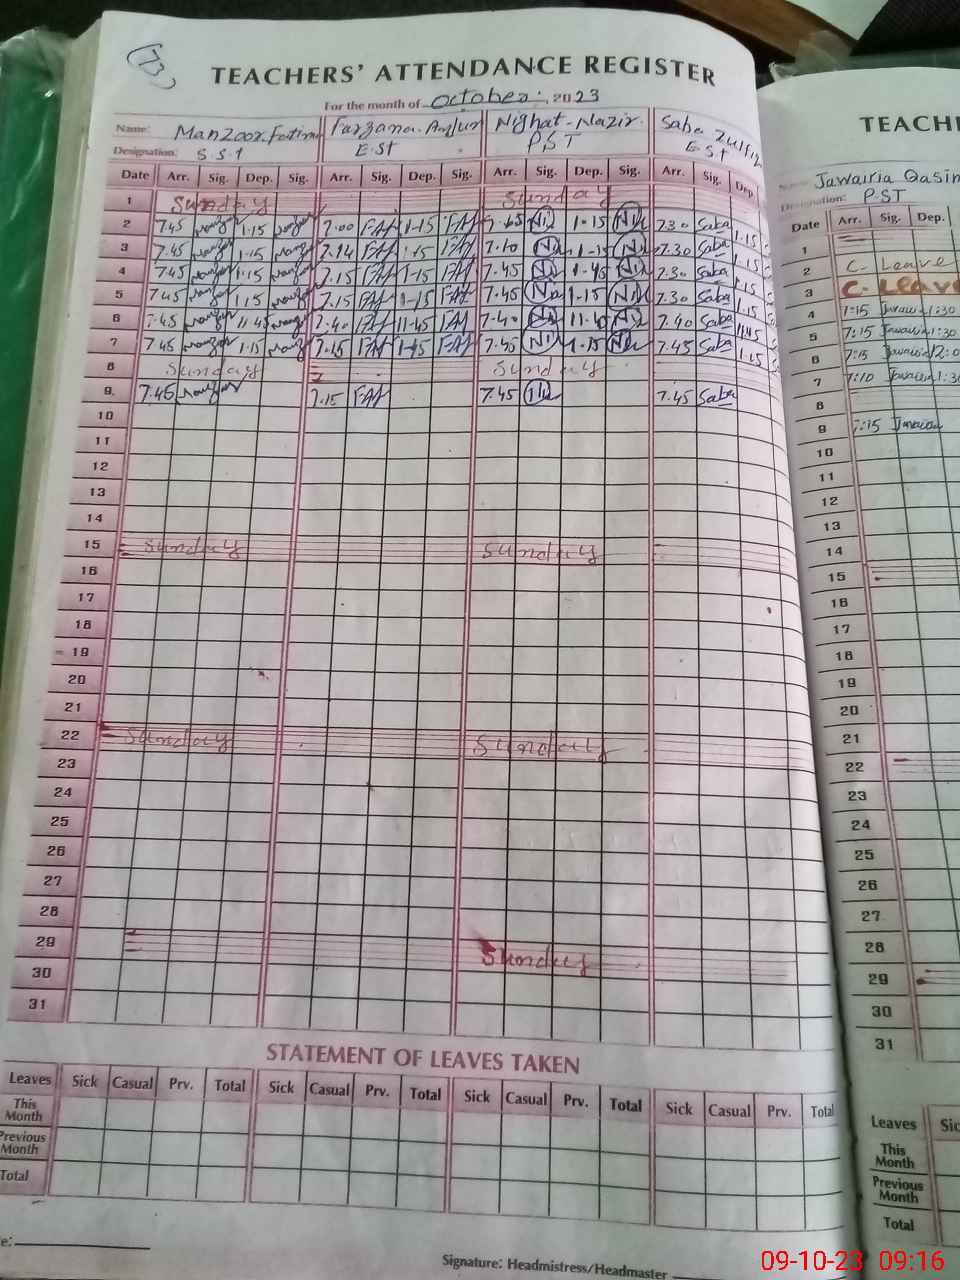 73
TEACHERS' ATTENDANCE REGISTER
For the month of October, 2023
Name: Manzoor Fatima Farzana Anjum Nighat Nazir Saba Zulfiq
Designation: S.S.T E.S.t P.S T E.S.t
Date Arr. Sig. Dep. Sig. Arr. Sig. Dep. Sig. Arr. Sig. Dep. Sig. Arr. Sig. Dep.
1 Sunday Sunday
2 7.45 1.15 7.00 1-15 1-15 7.30 Saba 1.15
3 7.45 1.15 7.14 1.15 7.10 1-15 7.30 Saba 1.15
4 7.45 1.15 7.15 1-15 7.45 1-45 7.30 Saba 1.15
5 7.45 1.15 7.15 1-15 7.45 1-15 7.30 Saba 1.15
6 7.45 11.45 7.40 11-45 7.40 7.40 Saba 11.45
7 7.45 1.15 7.15 7.45 1.15 7.45 Saba 1.15
8 Sunday Sunday
9. 7.45 7.15 7.45 7.45 Saba
10
11
12
13
14
15 Sunday Sunday
16
17
18
19
20
21
22 Sunday Sunday
23
24
25
26
27
28
29 Sunday
30
31
STATEMENT OF LEAVES TAKEN
Leaves Sick Casual Prv. Total Sick Casual Prv. Total Sick Casual Prv. Total Sick Casual Prv. Total
This Month
Previous Month
Total
e:
Signature: Headmistress/Headmaster
TEACHE
Name: Jawairia Qasim
Designation: P-ST
Date Arr. Sig. Dep.
1
2 C. Leave
3 C-Leave
4 7:15 1:30
5 7:15 1:30
6 7:15 12:0
7 7:10 1:30
8
9 7:15
10
11
12
13
14
15
16
17
18
19
20
21
22
23
24
25
26
27
28
29
30
31
Leaves Sic
This Month
Previous Month
Total
09-10-23 09:16